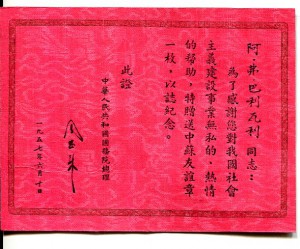 阿·弗·巴利瓦利同志:
為了感謝您對我國社會
主義建設事業無私的、熱情
的幫助,特贈送中蘇友誼章
一枚,以誌紀念。
此證
中華人民共和國國務院總理
周恩來
一九五七年六月十日